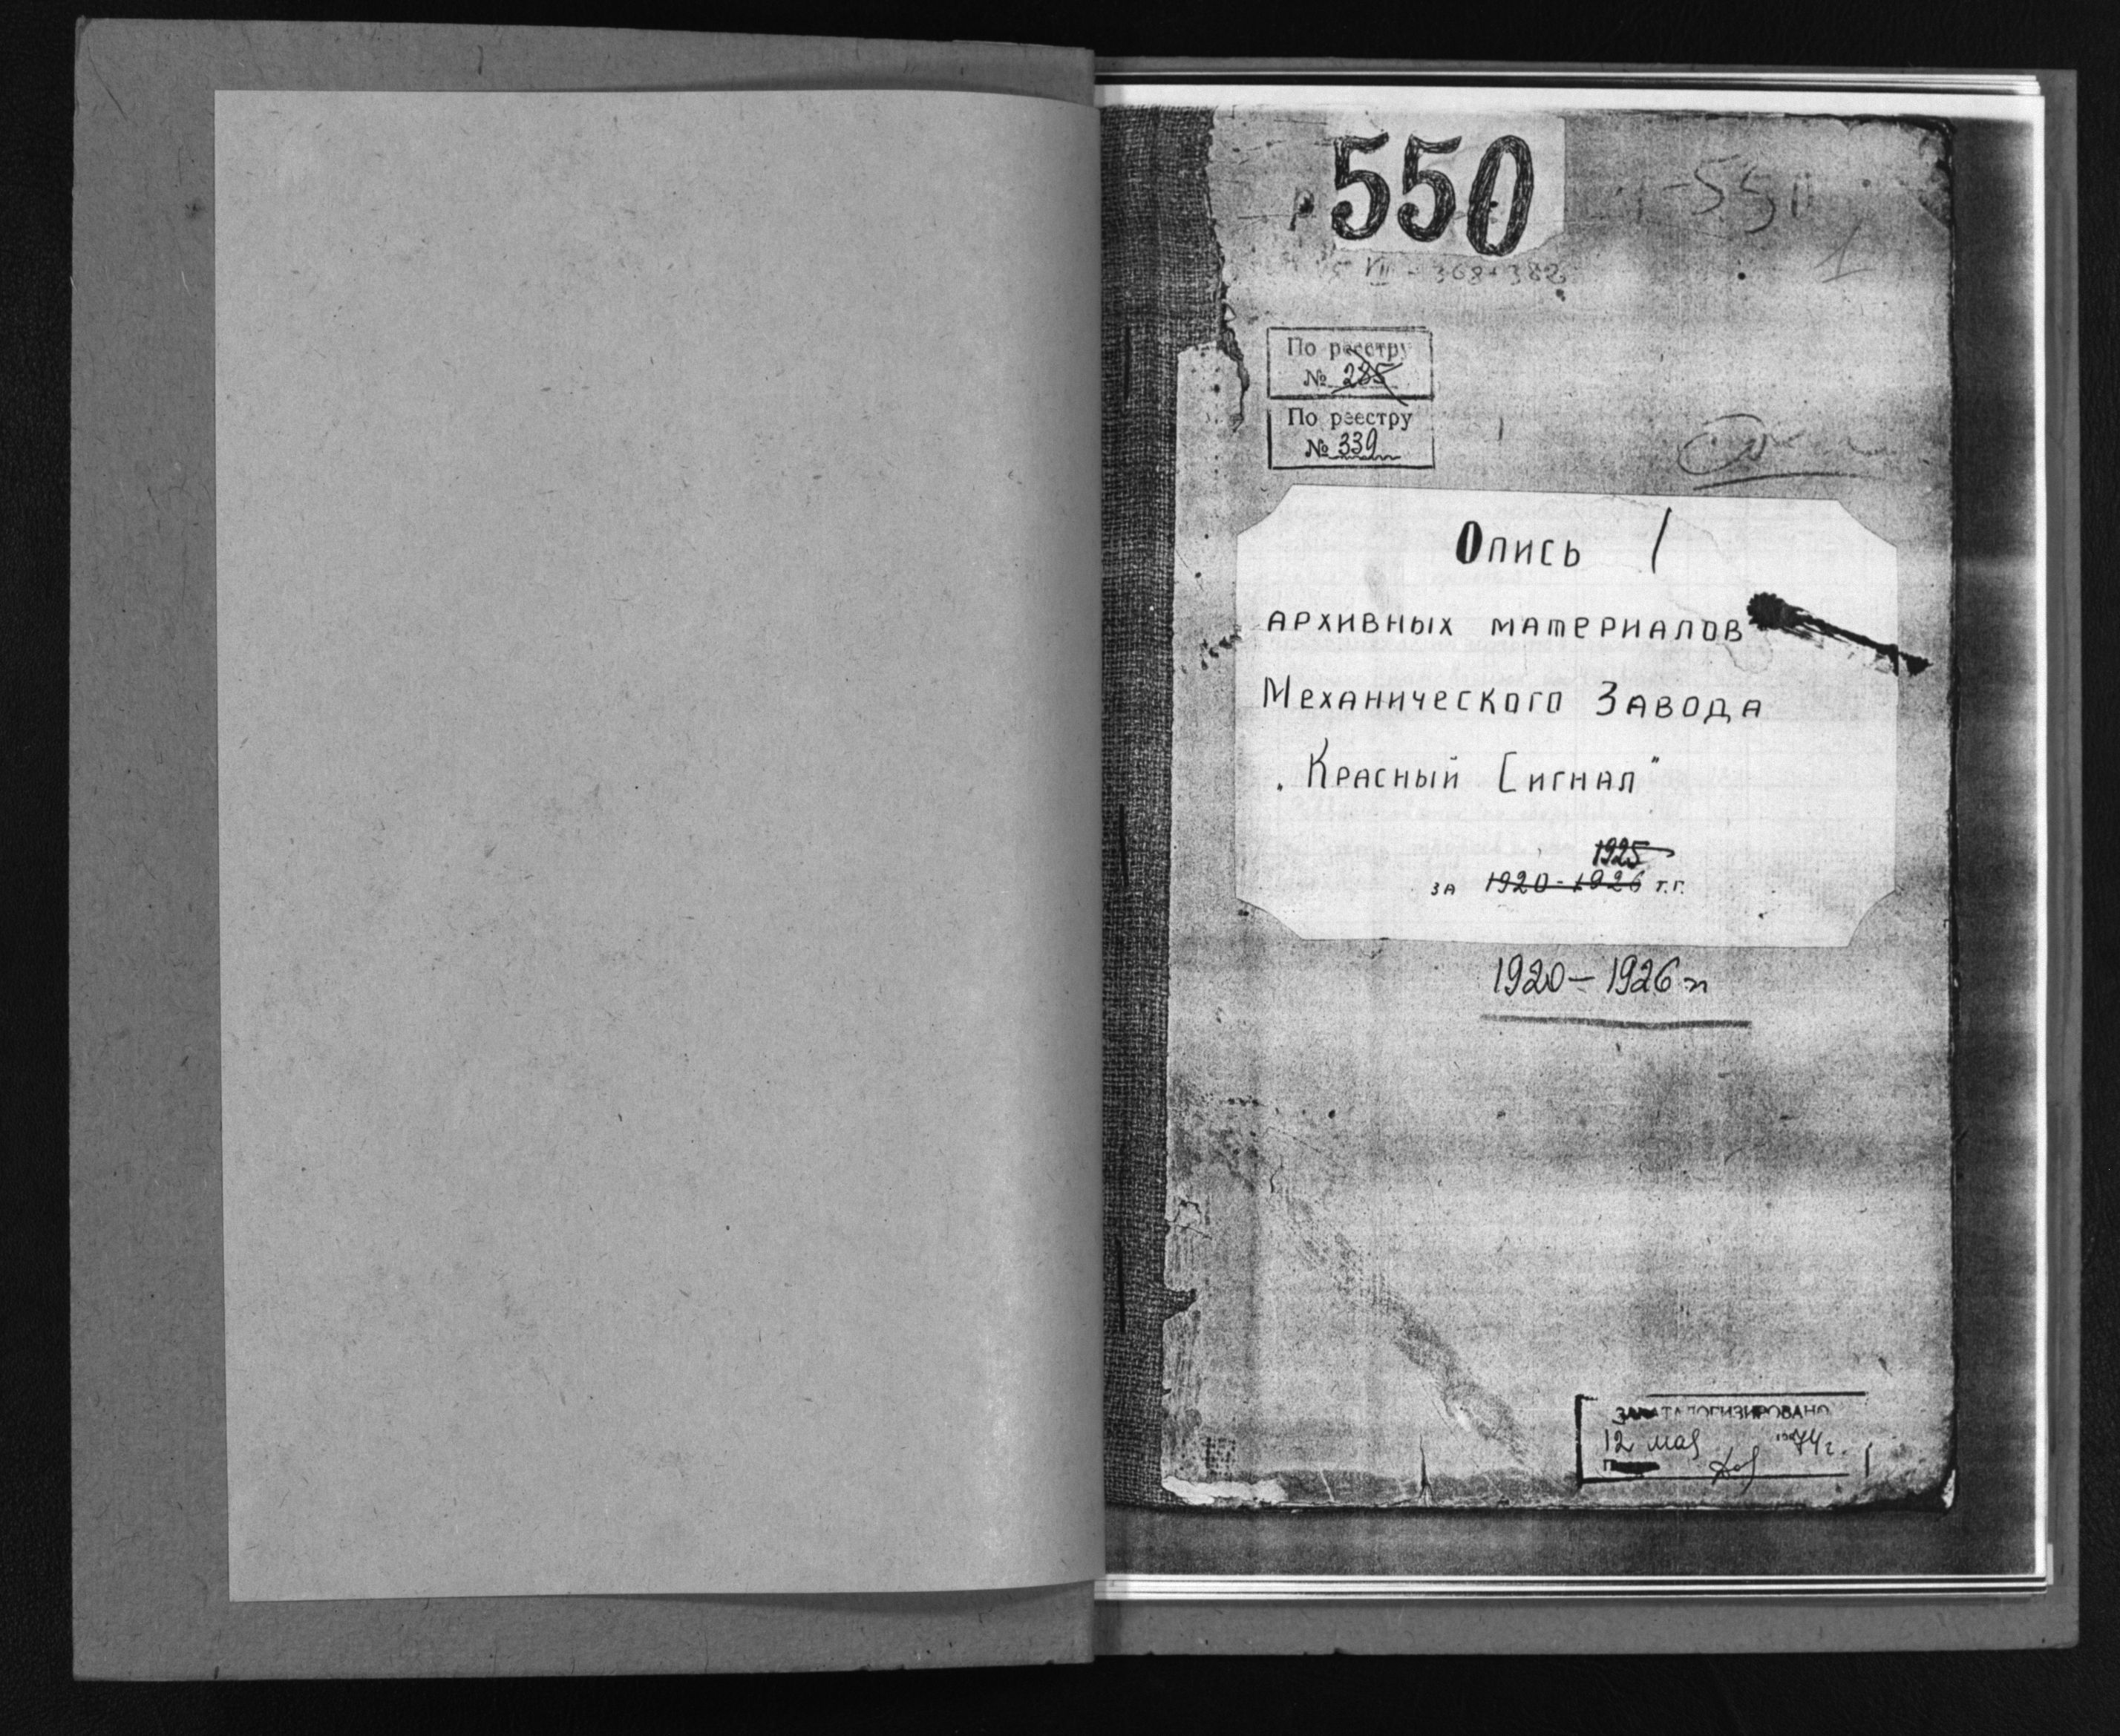 550
-550
1
По реестру
№ 235
По реестру
№ 339
Опись 1
архивных материалов
Механического Завода
„Красный Сигнал"
1925
за 1920-1926 г.г.
1920-1926 гг
ЗАКАТАЛОГИЗИРОВАНО
12 мая 1974 г.